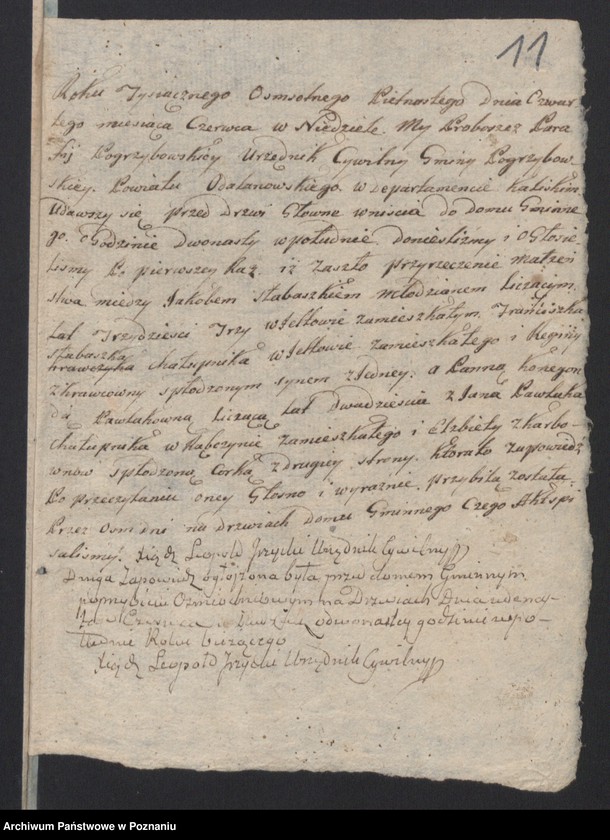 11
Roku Tysiącznego Osmsetnego Pietnastego Dnia Czwar
tego miesiąca Czerwca w Niedziele. My Proboszcz Para
fij Pogrzybowskiey Urzednik Cywilny Gminy Pogrzybow
skiey. Powiatu Odalanowskiego. w Departamencie Kaliskim
Udawszy się przed Drzwi Głowne wniścia do domu Gminne
go. o Godzinie Dwonasty wpołudnie. Donieslizmy i Ogłosie
lismy Po pierwszy Raz. iż Zaszło przyrzeczenie małzeń
stwa miedzy Jakobem Słabaszkiem młodzianem Liczącym
Lat Trzydziesci Trzy w Jełłowie zamieszkałym. Franciszka
Słabaszka
Chałupnika w Jełłowie zamieszkałego i Reginy
z krawcowny spłodzonym synem z Jedney: a Panną Konegon
dą Pawlakowną Liczącą Lat Dwadziescia z Jana Pawlaka
chałupnika w Rąbczynie zamieszkałego i Elzbiety z Karbo
wnow spłodzoną Corką z drugiey strony. Ktorato zapowiedz
Po przeczytaniu oney Głosno i wyraznie przybita została
Przez osm dni na drzwiach domu Gminnego Czego Akt spi
salismy. Xiądz Leopold Urzędnik Cywilny
Druga Zapowiedz ogłoszona była przed domem Gminnym
na Drzwiach Dnia
Czerwca o dwonastey godzinie wpo-
łudnie Roku biezącego
Xiądz Leopold Urzędnik Cywilny
Archiwum Państwowe w Poznaniu